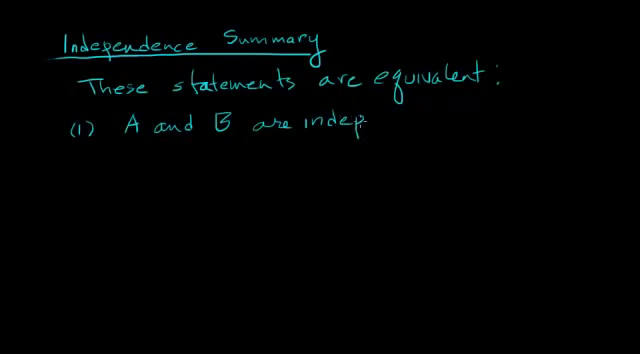 Independence Summary
These statements are equivalent:
(1) A and B are indep